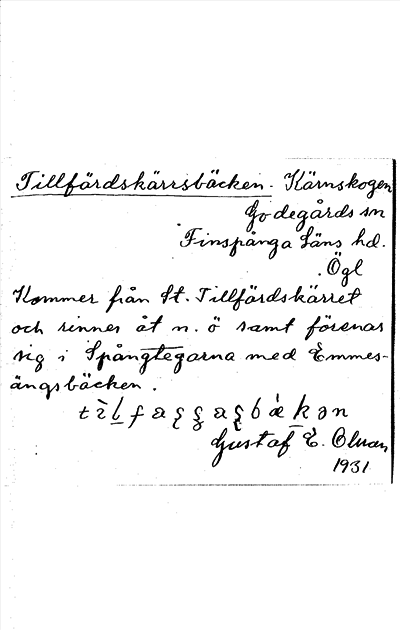 Tillfärdskärrsbäcken. Kärnskogen
Godegårds sn
Finspånga läns hd.
Ögl
Kommer från St. Tillfärdskärret
och rinner åt n. ö samt förenar
sig i Spångtegarna med Emmes-
ängsbäcken.
Gustaf E. Olman
1931